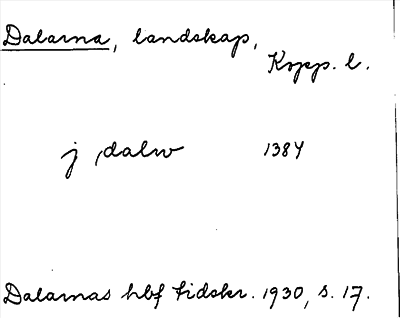 Dalarna, landskap,
Kopp. l.
j dalw 1384
Dalarnas hbf tidskr. 1930, s. 17.